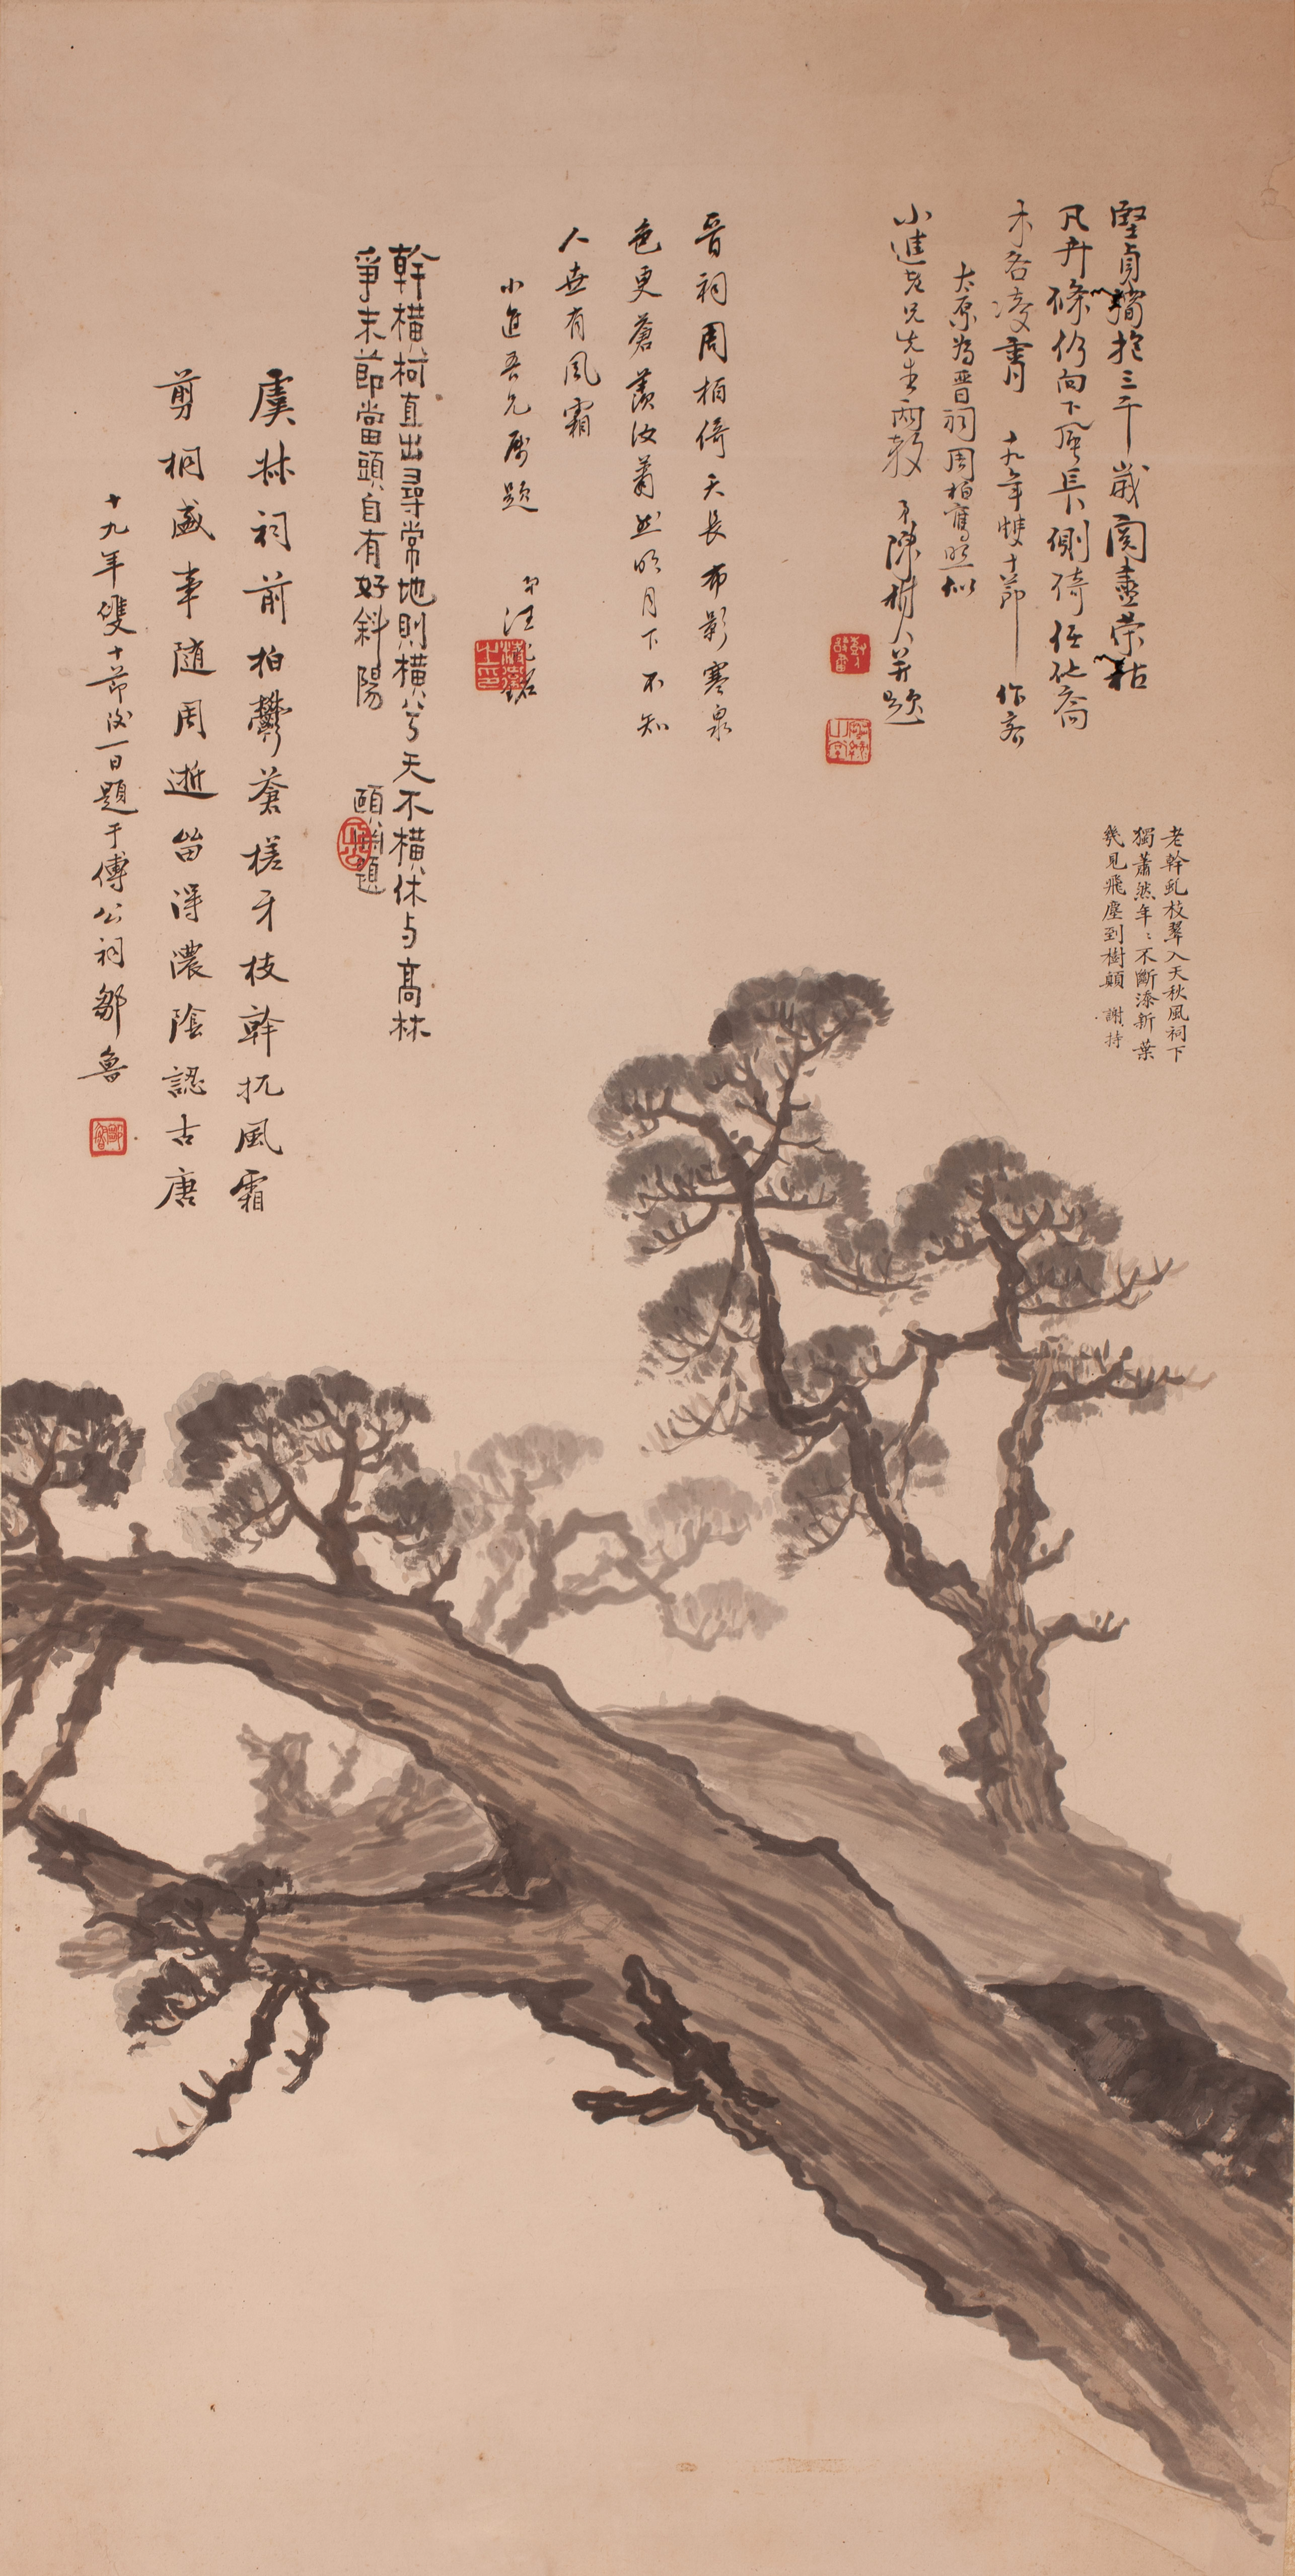 堅貞獨抱三千歲閱盡榮枯
凡卉條仍向下風長側猗任化裔
未吝凌霄 十九年雙十節 作客
太原為晉祠周柏寫照似
小進老兄先生兩教 弟陳樹人并題
晉祠周柏倚天長布影寒泉
色更蒼羨汝蕭然明月下不知
人世有風霜
小進吾兄屬題 弟汪兆銘
幹橫柯直出尋常地則橫兮天不橫休与高林
爭末節當頭自有好斜陽 頤淵題
虞林祠前柏鬱蒼槎牙枝幹抗風霜
剪桐盛事随周逝留得濃陰認古唐
十九年雙十節後一日題于傅公祠鄒魯
老幹虬枝翠入天秋風祠下
獨蕭然年〻不斷添新葉
幾見飛塵到樹顛 謝持